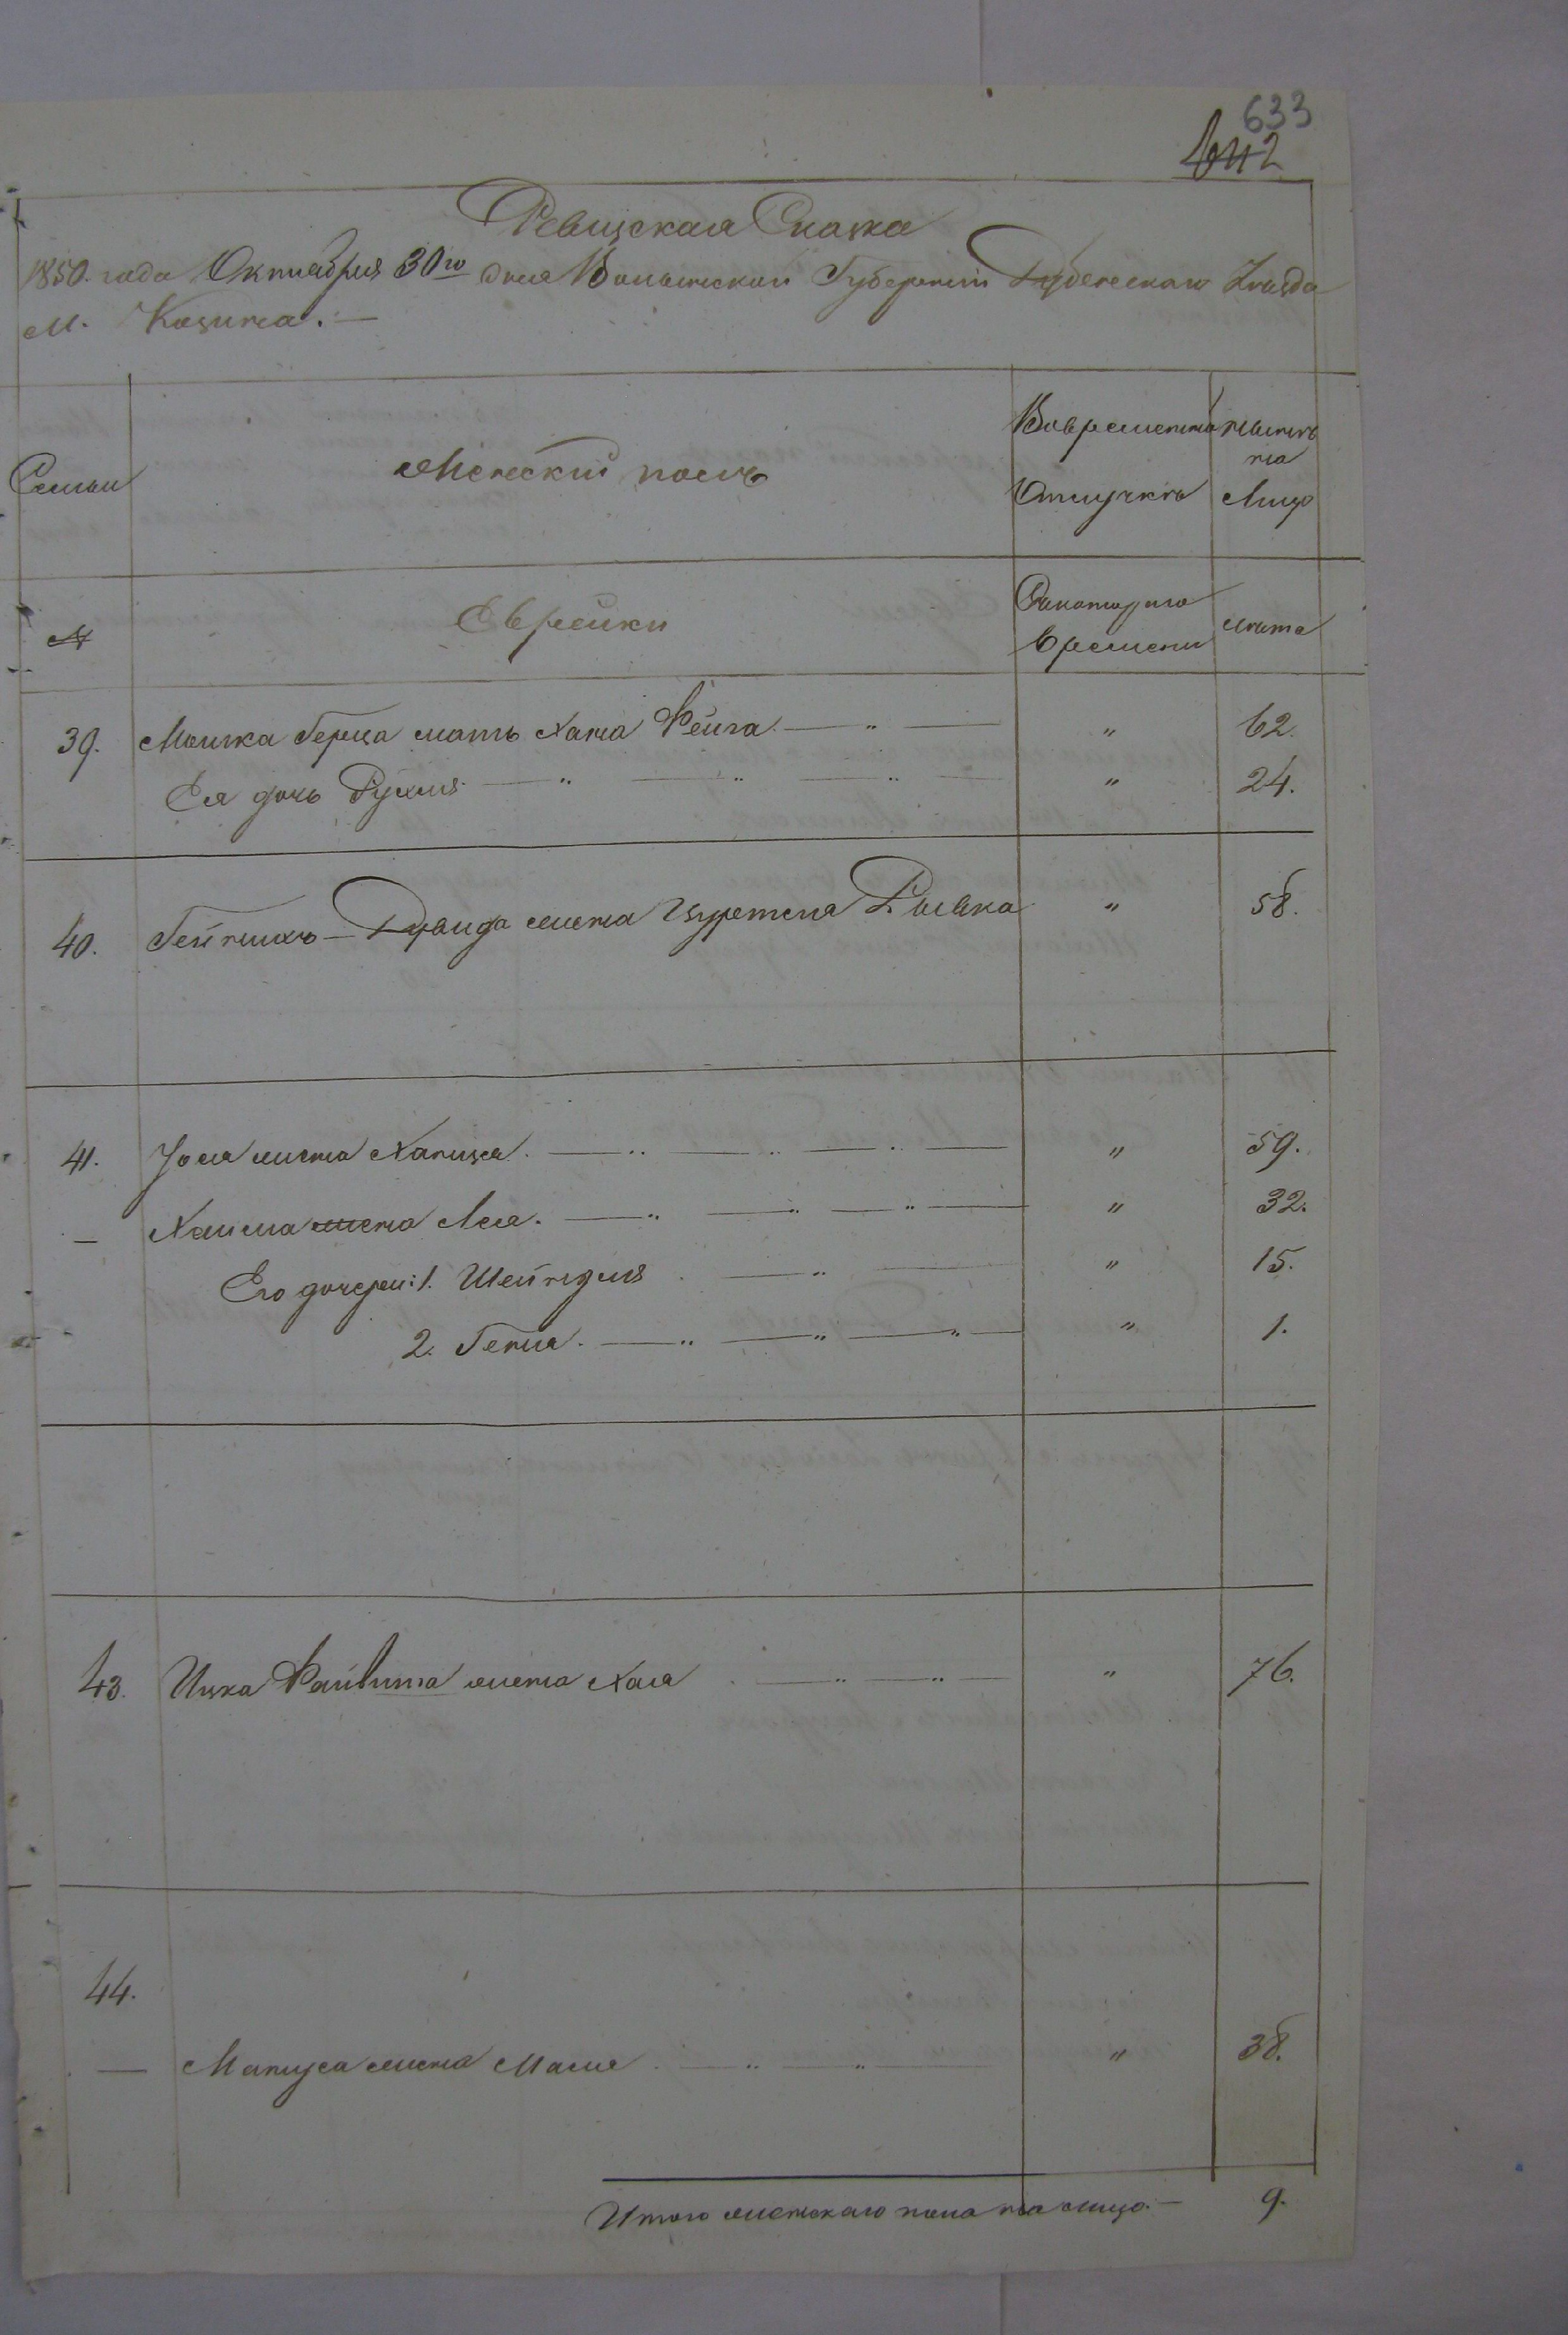 633
642
Ревизская Сказка
1850. года Октября 30го дня Волынской Губернiи Дубенскаго Уезда
М. Козина. —
Семьи
Женский полъ
Вовременной
Отлучкъ
ныне
на
Лицо
№
Еврейки
Скотораго
времени
лета
39. Мошка Герца мать Хана Фейга — " — " 62.
Ея дочь Рухля — " — " — " — " 24.
40. Гейнихъ-Дувида жена Ривка " 58.
41. Іоля жена Ханця. — " — " — " — " 59.
— Хаима жена Лея. — " — " — " — " 32.
Его дочери: 1. Шейндля — " — " 15.
2. Геня. — " — " — " — " 1.
43. Ицка жена Хая — " — " — " 76.
44.
— Мануса жена Маля — " — " — " 38.
Итого женскаго пола на лицо. — 9.